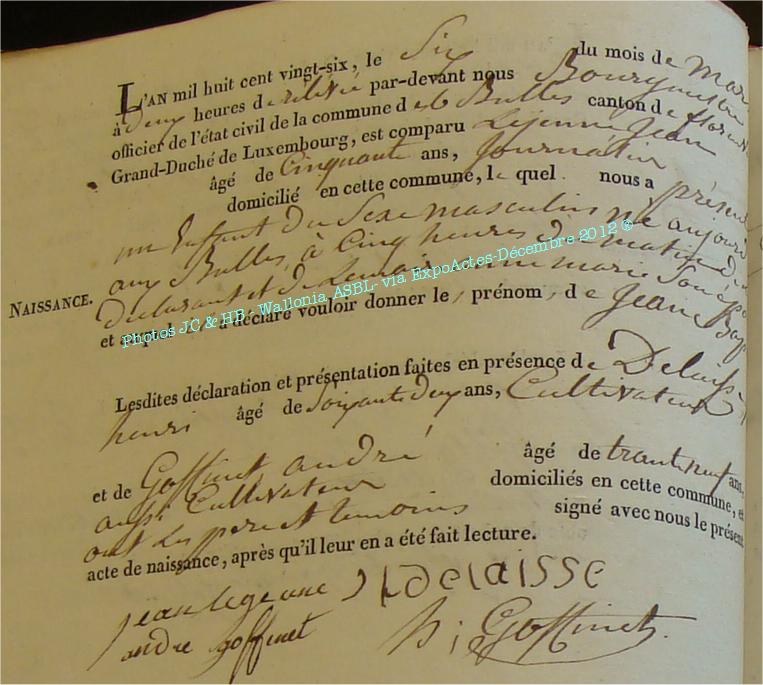 L'AN mil huit cent vingt-six, le Six du mois de Mar
à deux heures de rélevée par-devant nous Bourgmestre
officier de l'état civil de la commune des Bulles canton de floren
Grand-Duché de Luxembourg, est comparu Lejeune Jean
âgé de Cinquante ans, Journalier
domicilié en cette commune, le quel nous a présen
un Enfant du Sexe masculin né aujour
aux Bulles, à Cinq heures du matin de
déclarant et de anne marie Son ép
NAISSANCE.
et auquel a déclaré vouloir donner le, prénom, de Jean Bap
Photos JC & HB - Wallonia ASBL- via ExpoActes-Décembre 2012 ®
Lesdites déclaration et présentation faites en présence de Delaisse
henri âgé de Soixante deux ans, Cultivateur
et de Goffinet andré âgé de trante neuf ans,
aussi Cultivateur domiciliés en cette commune, et
ont les pere et temoins signé avec nous le présent
acte de naissance, après qu'il leur en a été fait lecture.
jean legeune J DeLaisse
andre goffinet h; Goffinet